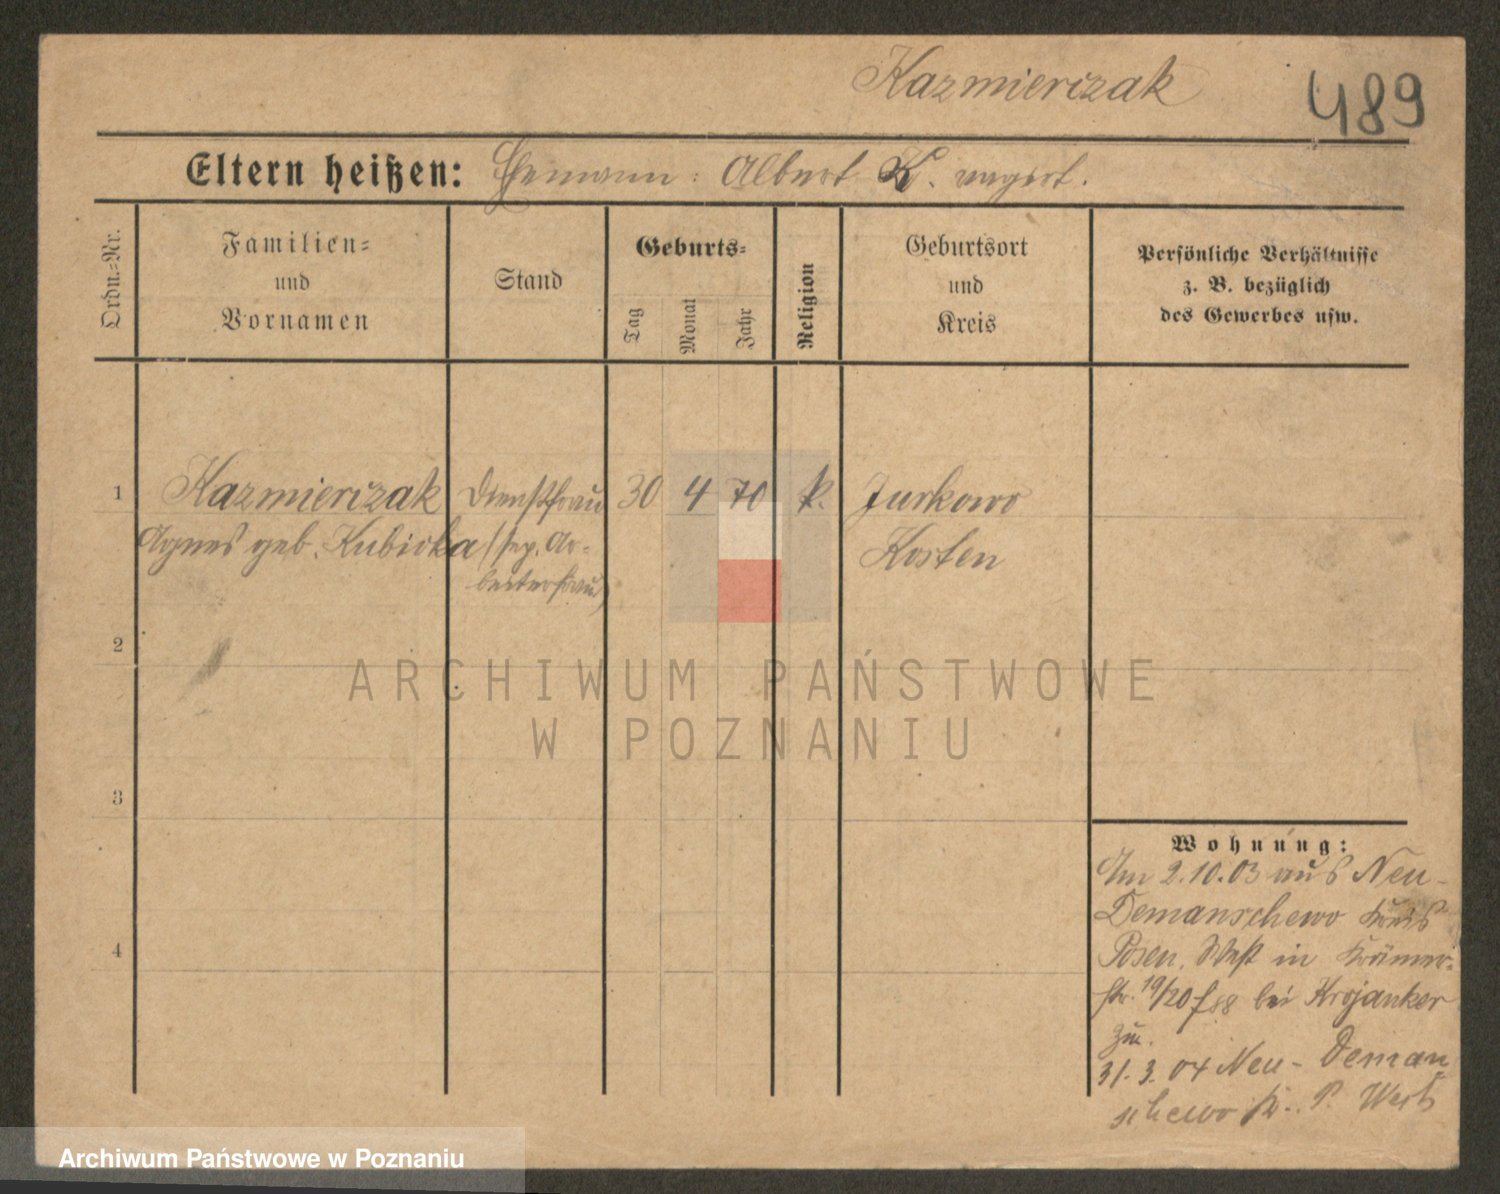 Kazmierczak
489
Eltern heißen: Ehemann: Albert K.
Ordn.-Nr.
Familien-
und
Vornamen
Stand
Geburts-
Tag
Monat
Jahr
Religion
Geburtsort
und
Kreis
Persönliche Verhältnisse
z. B. bezüglich
des Gewerbes usw.
1
Kazmierczak
Agnes geb. Kubicka
Dienstfrau
(sep. Ar-
beiterfrau)
30
4
70
k.
Jurkowo
Kosten
2
3
4
Wohnung:
Am 2.10.03 aus Neu-
Demanschewo Kreis
Posen. West in Krämer-
str. 19/20 bei Krojanker
zu.
31.3.04 Neu-Deman
schewo K. P. West
ARCHIWUM PAŃSTWOWE
W POZNANIU
Archiwum Państwowe w Poznaniu